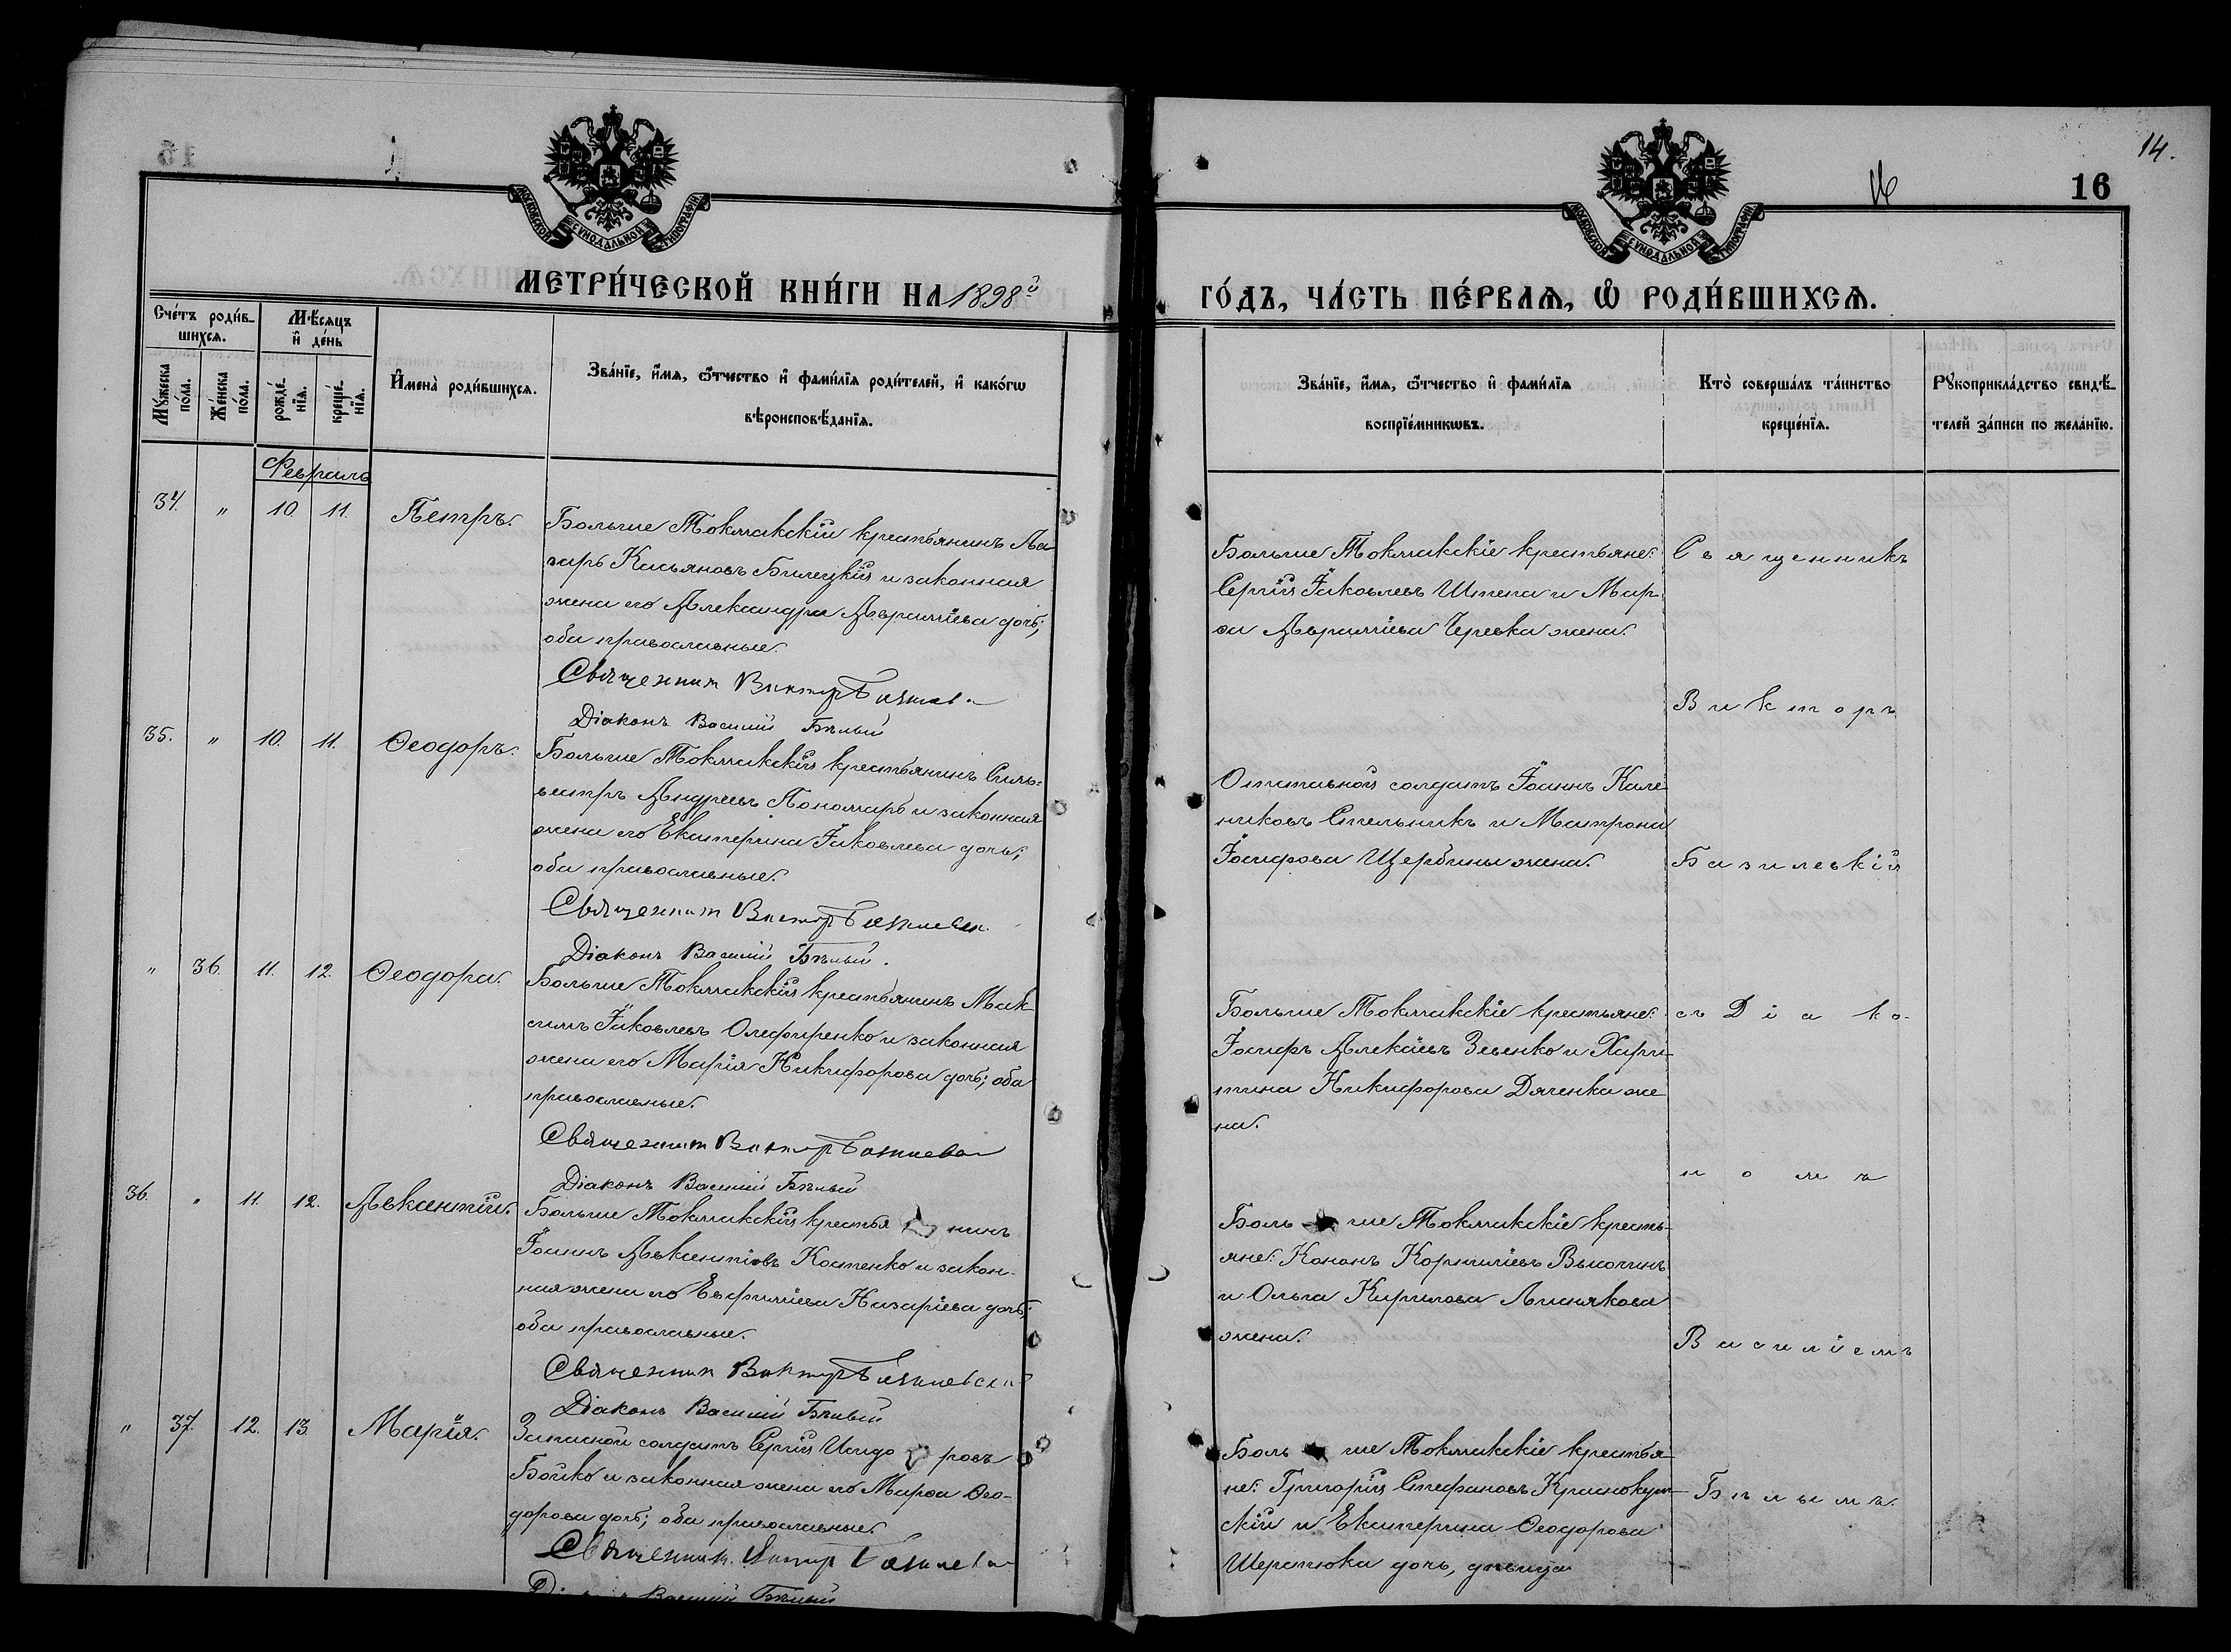 14.
16
МОСКОВСКОЙ СУНОДАЛЬНОЙ ТИПОГРАФІИ
МОСКОВСКОЙ СУНОДАЛЬНОЙ ТИПОГРАФІИ
МЕТРИ́ЧЕСКОЙ КНИ́ГИ НА 1898й
ГО́ДЪ, ЧА́СТЬ ПЕ́РВАѦ, Ѽ РОДИ́ВШИХСѦ.
Сче́тъ роди́в-
шихсѧ.
Мѣ́сѧцъ
и҆ де́нь
Мꙋ́жеска
по́ла.
Же́нска
по́ла.
рожде́-
нїѧ.
креще́-
нїѧ.
И҆мена̀ роди́вшихсѧ.
Зва́нїе, и҆́мѧ, ѻ҆́тчество и҆ фами́лїѧ роди́телей, и҆ како́гѡ
вѣроисповѣ́данїѧ.
Зва́нїе, и҆́мѧ, ѻ҆́тчество и҆ фами́лїѧ
воспрїе́мникѡвъ.
Кто̀ соверша́лъ та́инство
креще́нїѧ.
Рꙋкоприкла́дство свидѣ́-
телей за́писи по жела́нїю.
Февраль
34. " 10. 11. Петръ.
Больше Токмакскій крестьянинъ Ла
зарь Касьяновъ Билецкій и законная
жена его Александра Авраміева дочь;
оба православные.
Священник Виктор Базилевск
Діаконъ Василій Бѣлый
Больше Токмакскіе крестьяне:
Сергій Іаковлевъ Штепа и Мар
ѳа Авраміева Черевка жена.
35. " 10. 11. Ѳеодоръ.
Больше Токмакскій крестьянинъ Силь-
вестръ Андреевъ Пономарь и законная
жена его Екатерина Іаковлева дочь;
оба православные.
Священник Виктор Базилевск
Діаконъ Василій Бѣлый.
Отставной солдатъ Іоаннъ Кале
никовъ Стельникъ и Матрона
Іосифова Щербины жена.
" 36. 11. 12. Ѳеодора.
Больше Токмакскій крестьянинъ Мак
симъ Іаковлевъ Олефиренко и законная
жена его Марія Никифорова дочь; оба
православные.
Священник Виктор Базилевск
Діаконъ Василій Бѣлый
Больше Токмакскіе крестьяне:
Іосифъ Алексіевъ Зевенко и Хари-
тина Никифорова Дяченка же
на.
36. " 11. 12. Авксентій.
Больше Токмакскій крестья нинъ
Іоаннъ Авксентіевъ Костенко и закон-
ная жена его Евфиміева Назаріева дочь;
оба православные.
Священник Виктор Базилевск
Діаконъ Василій Бѣлый
Боль ше Токмакскіе кресть-
яне: Кононъ Корниліевъ Высочинъ
и Ольга Кирилова Лиснякова
жена.
" 37. 12. 13. Марія.
Запасной солдатъ Сергій Исидо ровъ
Бойко и законная жена его Марѳа Ѳео-
дорова дочь; оба православные.
Священник Виктор Базилевск
Діаконъ Василій Бѣлый
Боль ше Токмакскіе крестья-
не: Григорій Стефановъ Краснокут-
скій и Екатерина Ѳеодорова
Шерстюка дочь, дѣвица
Священникъ
Викторъ
Базилевкій
съ Діако-
номъ
Василіемъ
Бѣлымъ.